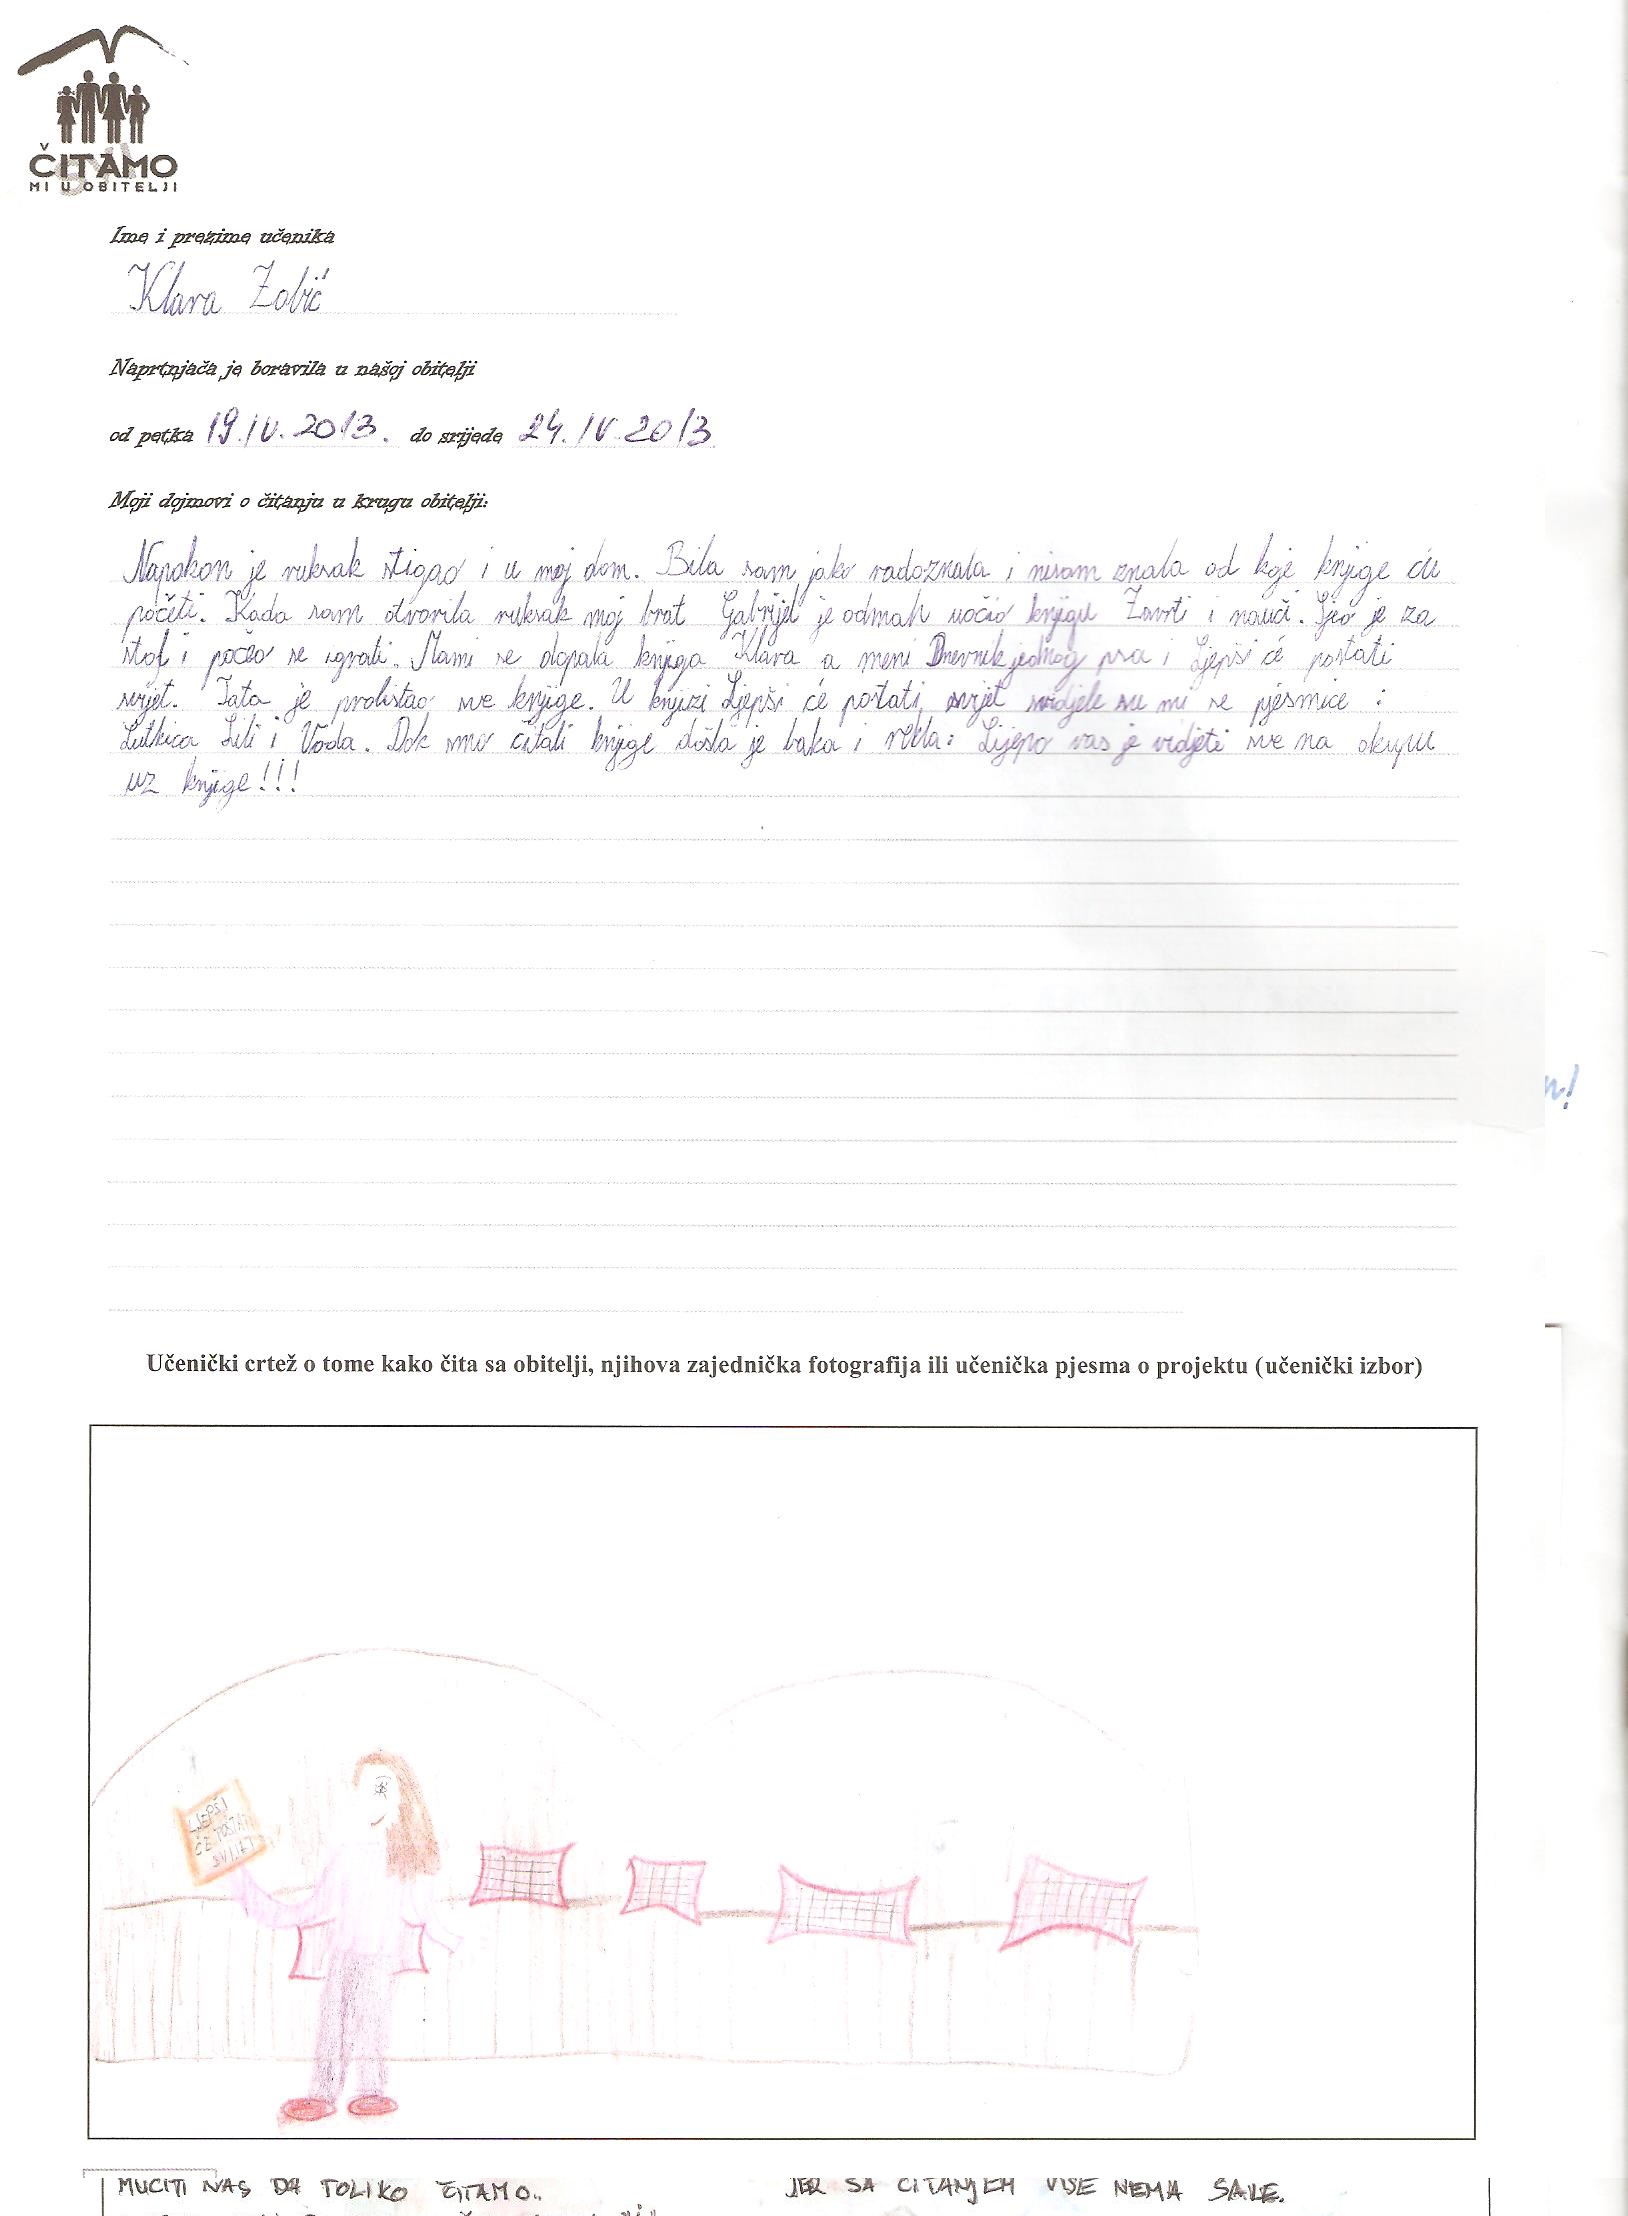 ČITAMO
MI U OBITELJI
Ime i prezime učenika
Klara Zobić
Naprtnjača je boravila u našoj obitelji
od petka 19.IV.2013. do srijede 24.IV.2013
Moji dojmovi o čitanju u krugu obitelji:
Napokon je ruksak stigao i u moj dom. Bila sam jako radoznala i nisam znala od koje knjige ću
početi. Kada sam otvorila ruksak moj brat Gabrijel je odmah uočio knjigu Zavrti i nauči. Sjeo je za
stol i počeo se igrati. Mami se dopala knjiga Klara a meni Dnevnik jednog psa i Ljepši će postati
svijet. Tata je prolistao sve knjige. U knjizi Ljepši će postati svijet svidjele su mi se pjesmice :
Lutkica Lili i Voda. Dok smo čitali knjige došla je baka i rekla: Lijepo vas je vidjeti sve na okupu
uz knjige!!!
n!
Učenički crtež o tome kako čita sa obitelji, njihova zajednička fotografija ili učenička pjesma o projektu (učenički izbor)
LJEPŠI
ĆE POSTATI
SVIJET
MUČITI NAS DA TOLIKO ČITAMO..
JER SA ČITANJEM VIŠE NEMA ŠALE.